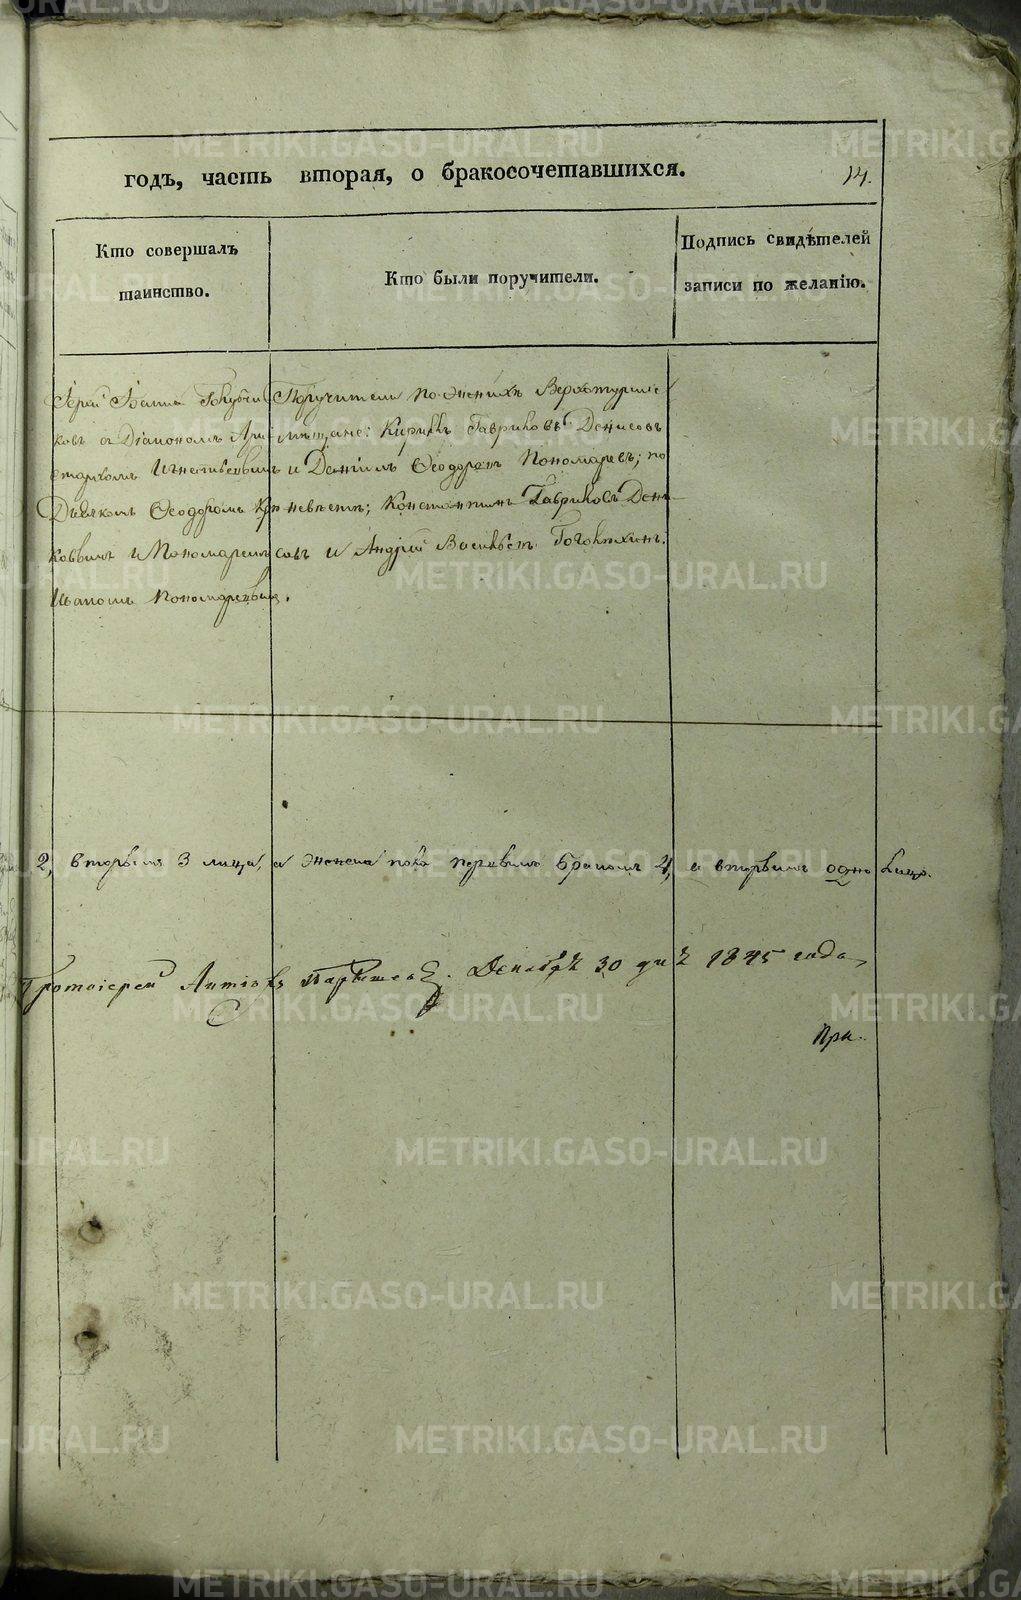 годъ, часть вторая, о бракосочетавшихся.
14.
Кто совершалъ
таинство.
Кто были поручители.
Подпись свидѣтелей
записи по желанію.
Іерей Іоаннъ
ковъ съ Діакономъ Ари-
стархомъ
Дьякомъ Ѳеодоромъ
и Пономаремъ
Иваномъ Пономаревымъ.
Поручители по женихѣ Верхотурскіе
мѣщане: Кирилъ Гавриловъ Денисовъ
и Даніилъ Ѳеодоровъ Пономаревъ; по
невѣстѣ; Константинъ Гавриловъ Дени-
совъ и Андрей Васильевъ
2, вторымъ 3 лица, а женска пола первымъ бракомъ 4, а вторымъ одно лицо.
Протоіерей Декабря 30 дня 1845 года
При.
METRIKI.GASO-URAL.RU